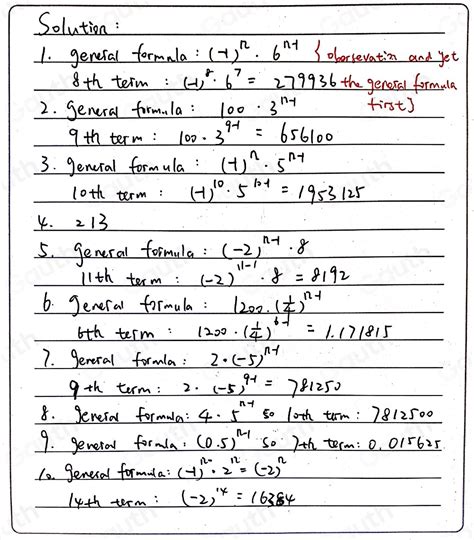 Solution :
1. general formula : (-1)^n · 6^(n-1) { obersevatin and get
8th term : (-1)^8 · 6^7 = 279936 the general formula
first }
2. general formula : 100 · 3^(n-1)
9th term : 100 · 3^(9-1) = 656100
3. general formula : (-1)^n · 5^(n-1)
10th term : (-1)^10 · 5^(10-1) = 1953125
4. 213
5. general formula : (-2)^(n-1) · 8
11th term : (-2)^(11-1) · 8 = 8192
6. general formula : 1200 · (1/4)^(n-1)
6th term : 1200 · (1/4)^(6-1) = 1.171815
7. general formula : 2 · (-5)^(n-1)
9th term : 2 · (-5)^(9-1) = 781250
8. general formula : 4 · 5^(n-1) so 10th term : 7812500
9. general formula : (0.5)^(n-1) so 7th term : 0.015625
10. general formula : (-1)^n · 2^n = (-2)^n
14th term : (-2)^14 = 16384